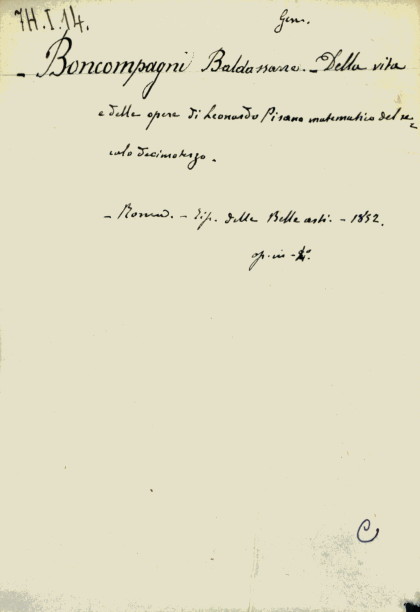 7H.I.14.
Gen.
- Boncompagni Baldassarre. - Della vita
e delle opere di Leonardo Pisano matematico del se-
colo decimoterzo.
- Roma. - Tip. delle Belle arti. - 1852.
op. in-4°.
C